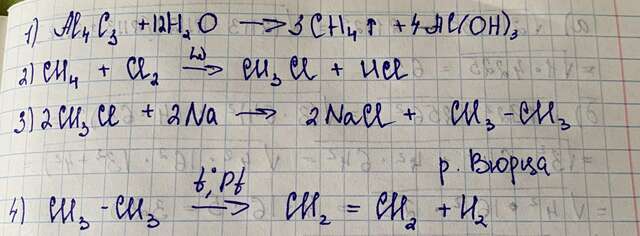 1) Al₄C₃ + 12H₂O → 3CH₄↑ + 4Al(OH)₃
2) CH₄ + Cl₂ →(hν) CH₃Cl + HCl
3) 2CH₃Cl + 2Na → 2NaCl + CH₃-CH₃
р. Вюрца
4) CH₃-CH₃ →(t; Pt) CH₂=CH₂ + H₂